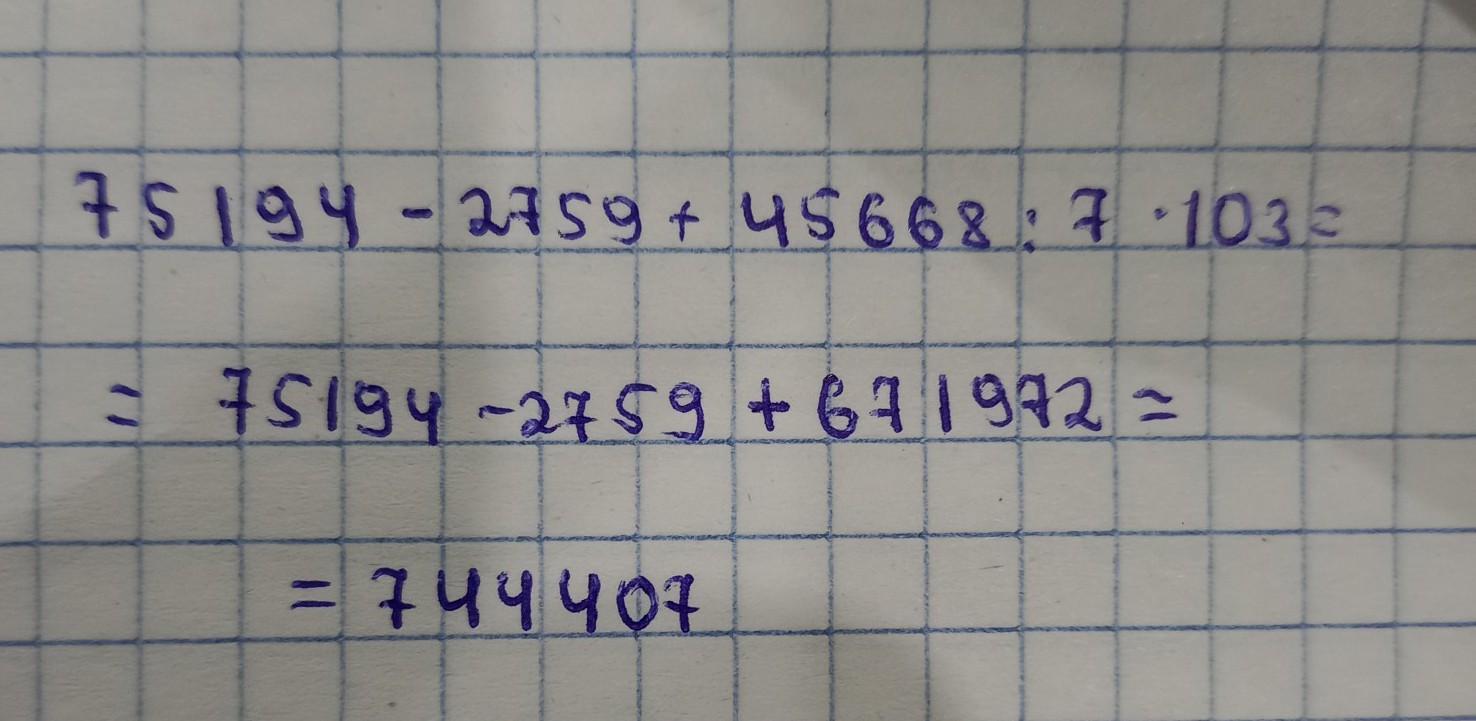 75194 - 2759 + 45668 : 7 · 103 =
= 75194 - 2759 + 671972 =
= 744407